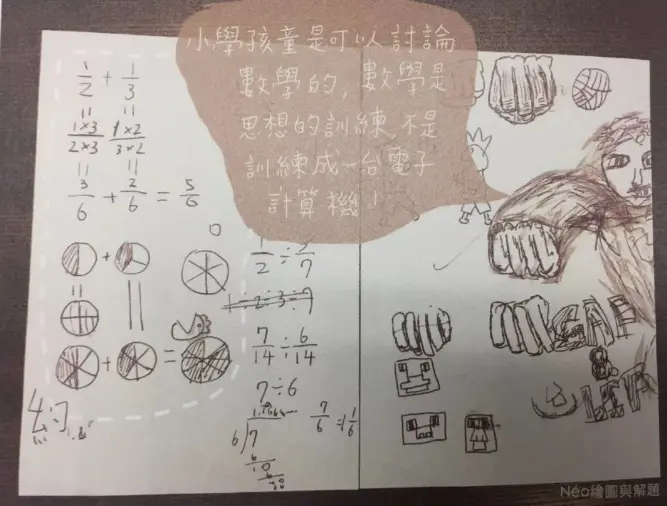 小學孩童是可以討論
數學的，數學是
思想的訓練，不是
訓練成一台電子
計算機！
1/2 + 1/3
= =
1×3/2×3 1×2/3×2
= =
3/6 + 2/6 = 5/6
+
=
+ =
1/2 ÷ 3/7
1÷2÷3÷7
7/14 ÷ 6/14
7÷6
1.166
6 7 7/6 = 1 1/6
6
10
6
Néo繪圖與解題